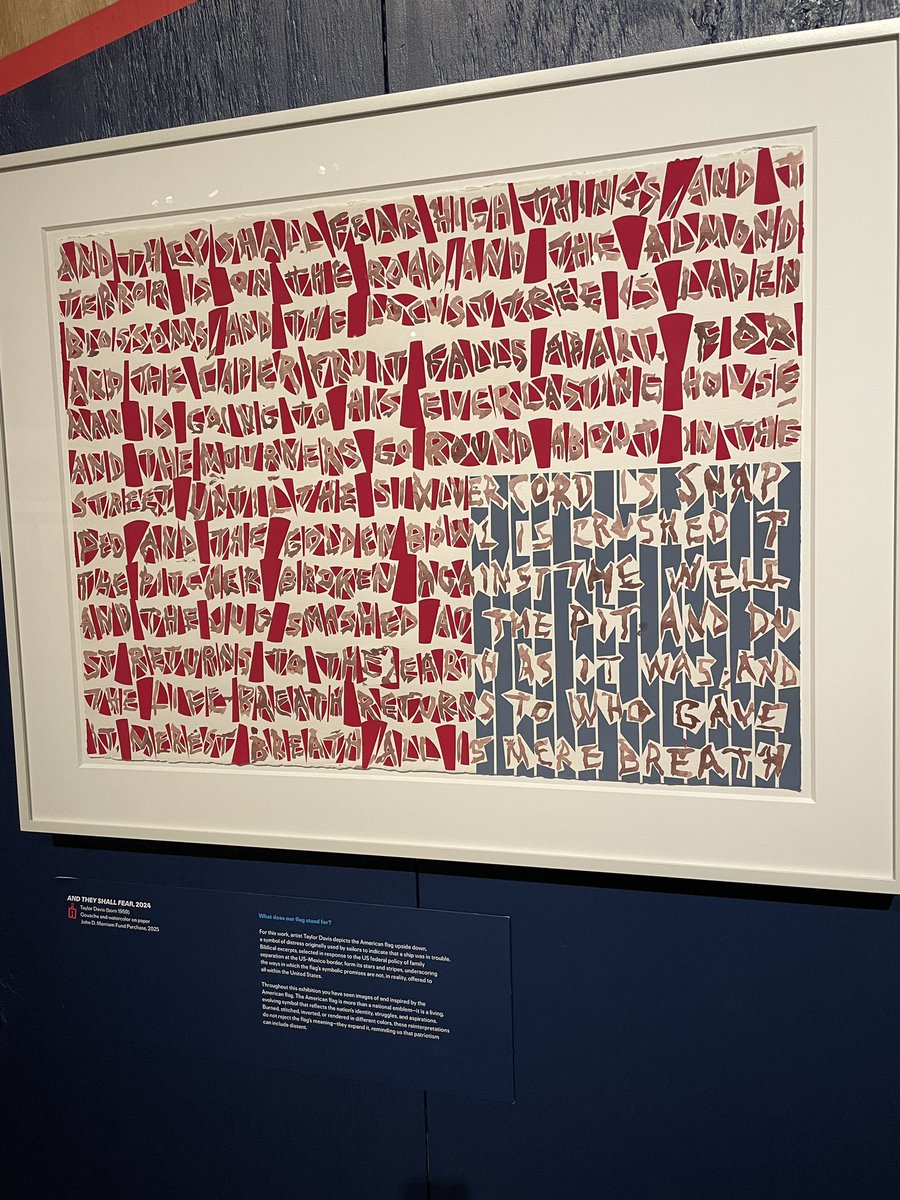 AND THEY SHALL FEAR HIGH THINGS AND T
TERROR IS ON THE ROAD AND THE ALMOND
BLOSSOMS AND THE LOCUST TREE IS LADEN
AND THE CAPER FRUIT FALLS APART. FOR
MAN IS GOING TO HIS EVERLASTING HOUSE
AND THE MOURNERS GO ROUND ABOUT IN THE
STREET. UNTIL THE SILVER CORD IS SNAP
PED AND THE GOLDEN BOWL IS CRUSHED T
THE PITCHER BROKEN AGAINST THE WELL
AND THE JUG SMASHED AT THE PIT. AND DU
ST RETURNS TO THE EARTH AS IT WAS, AND
THE LIFE BREATH RETURNS TO WHO GAVE
IT MEREST BREATH ALL IS MERE BREATH
AND THEY SHALL FEAR, 2024
Taylor Davis (born 1959)
Gouache and watercolor on paper
John D. Merriam Fund Purchase, 2025
What does our flag stand for?
For this work, artist Taylor Davis depicts the American flag upside down,
a symbol of distress originally used by sailors to indicate that a ship was in trouble.
Biblical excerpts, selected in response to the US federal policy of family
separation at the US-Mexico border, form its stars and stripes, underscoring
the ways in which the flag's symbolic promises are not, in reality, offered to
all within the United States.
Throughout this exhibition you have seen images of and inspired by the
American flag. The American flag is more than a national emblem—it is a living,
evolving symbol that reflects the nation's identity, struggles, and aspirations.
Burned, stitched, inverted, or rendered in different colors, these reinterpretations
do not reject the flag's meaning—they expand it, reminding us that patriotism
can include dissent.